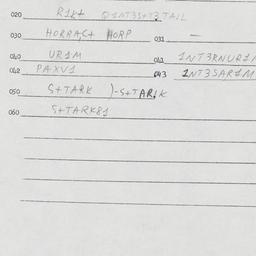 020 R1kt Q1NT3St3TAIL
030 HORRASt HORP 031 —
040 UR1M 041 1NT3RNUR1M
042 PAXV1 043 1NT3SAR1M
050 S+TARK )-S+TARK
060 S+TARK81